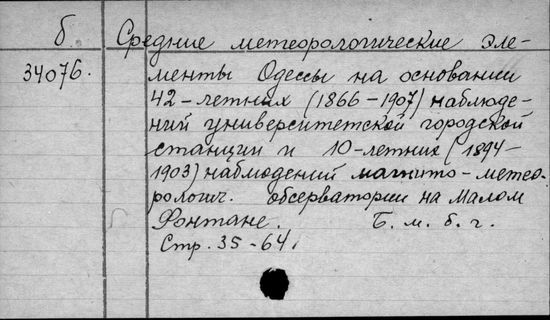 б. Средние метеорологические эле-
34076. менты Одессы на основании
42-летних (1866-1907) наблюде-
ний университетской городской
станции и 10-летних (1894-
1903) наблюдений магнито-метео-
рологич. обсерватории на Малом
Фонтане. Б. м. б. г.
Стр. 35-64.